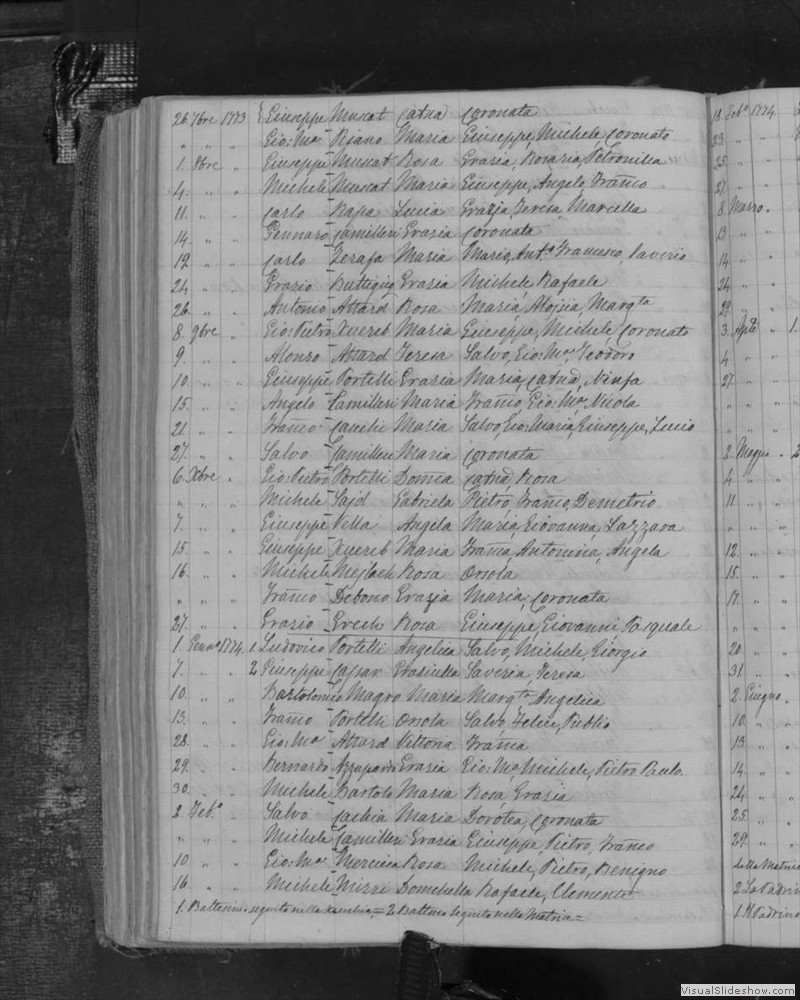 26 7bre 1773 Giuseppe Muscat Catnd Coronata
" " " Gio: Ma Piano Maria Giuseppe, Michele, Coronato
1. 8bre " Giuseppe Muscat Rosa Grazia, Rosaria, Petronilla
4. " " Michele Muscat Maria Giuseppe, Angelo, Franco
11. " " Carlo Rapa Lucia Grazja, Teresa, Marcella
14. " " Gennaro Camilleri Grazia Coronata
19. " " Carlo Zerafa Maria Maria, Anta Francesco, Saverio
24 " " Grazio Buttigieg Grazia Michele, Rafaele
26. " " Antonio Attard Rosa Maria, Aloisia, Margta
8. 9bre " Gio: Pietro Xuereb Maria Giuseppe, Michele, Coronato
9. " " Alonzo Attard Teresa Salvo, Gio: Ma, Teodoro
10. " " Giuseppe Portelli Grazia Maria, Catnd, Ninfa
15. " " Angelo Camilleri Maria Franco, Gio: Ma, Nicola
21. " " Franco Maria Salvo, Gio: Maria, Giuseppe, Lucio
27. " " Salvo Camilleri Maria Coronata
6. Xbre " Gio: Pietro Portelli Domca Catnd, Rosa
" " " Michele Sajd Gabriela Pietro, Franco, Demetrio
7. " " Giuseppe Vella Angela Maria, Giovanna, Lazzara
15. " " Giuseppe Xuereb Maria Franca, Antonina, Angela
16. " " Michele Mejlach Rosa Orsola
" " " Franco Debono Grazja Maria, Coronata
27. " " Grazio Grech Rosa Giuseppe, Giovanni, Pasquale
1. Gennro 1774. 1 Ludovico Portelli Angelica Salvo, Michele, Giorgio
7. " " 2 Giuseppe Caspar Graziulla Saveria, Teresa
10. " " Bartolomeo Magro Maria Margta Angelica
13. " " Franco Portelli Orsola Salvo, Felice, Publio
28. " " Gio: Ma Attard Vittoria Franca
29. " " Bernardo Azzopardi Grazia Gio: Ma, Michele, Pietro Paulo
30. " " Michele Bartolo Maria Rosa, Grazia
2. Feb. " Salvo Maria Dorotea, Coronata
" " " Michele Camilleri Grazia Giuseppe, Pietro, Franco
10. " " Gio: Ma Mercieca Rosa Michele, Pietro, Benigno
16. " " Michele Mizzi Domchella Rafaele, Clemente
1. Battesimo seguito nella = 2 Battmo seguito nella Matria =
18. Feb. 1774.
23. " "
25. " "
27. " "
8. Marzo.
13. " "
14. " "
24. " "
29. " "
3. Aple " 1.
4 " "
27. " "
" " "
" " "
3. Maggio " 2
4. " "
11. " "
" " "
12. " "
15. " "
17. " "
" " "
20. " "
31. " "
2. Giugno "
10. " "
13. " "
14. " "
24 " "
25. " "
29. " "
della Matrice
2 La Padrin
1 Il Padrino
VisualSlideshow.com